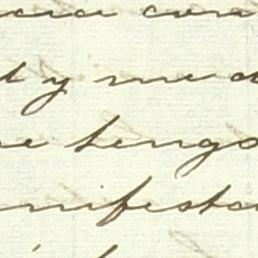 cia con
y me d
e tengo
nifesta